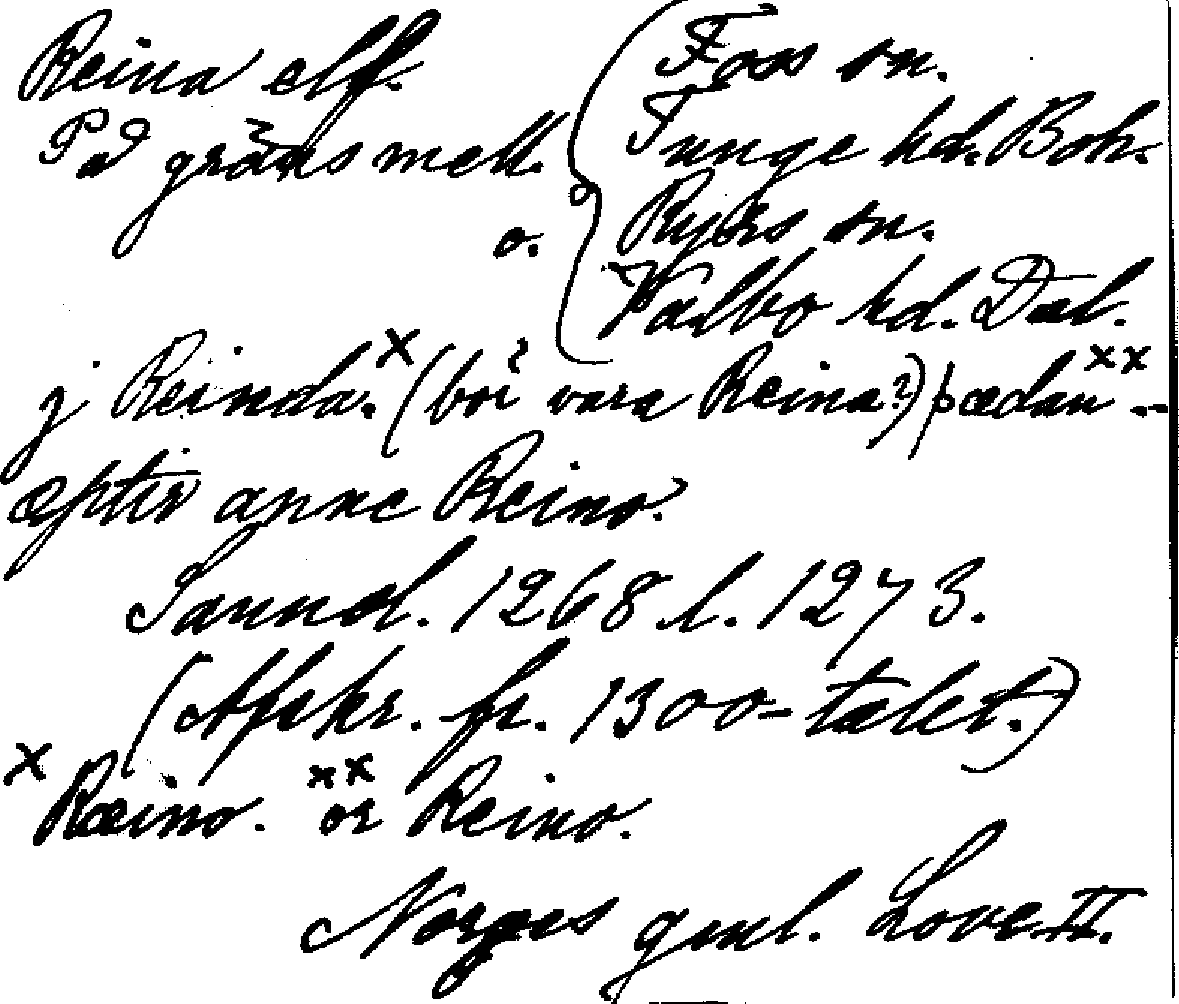 Reina elf.
På gräns mell. Foss sn.
Tunge hd. Boh.
o. Ryrs sn.
Valbo hd. Dal.
j Reinda.x (bör vara Reina?) þædan xx --
æptir apne Reino.
Sannol. 1268 l. 1273.
(Afskr. fr. 1300-talet.)
x Ræino. xx or Reino.
Norges gml. Love. II.